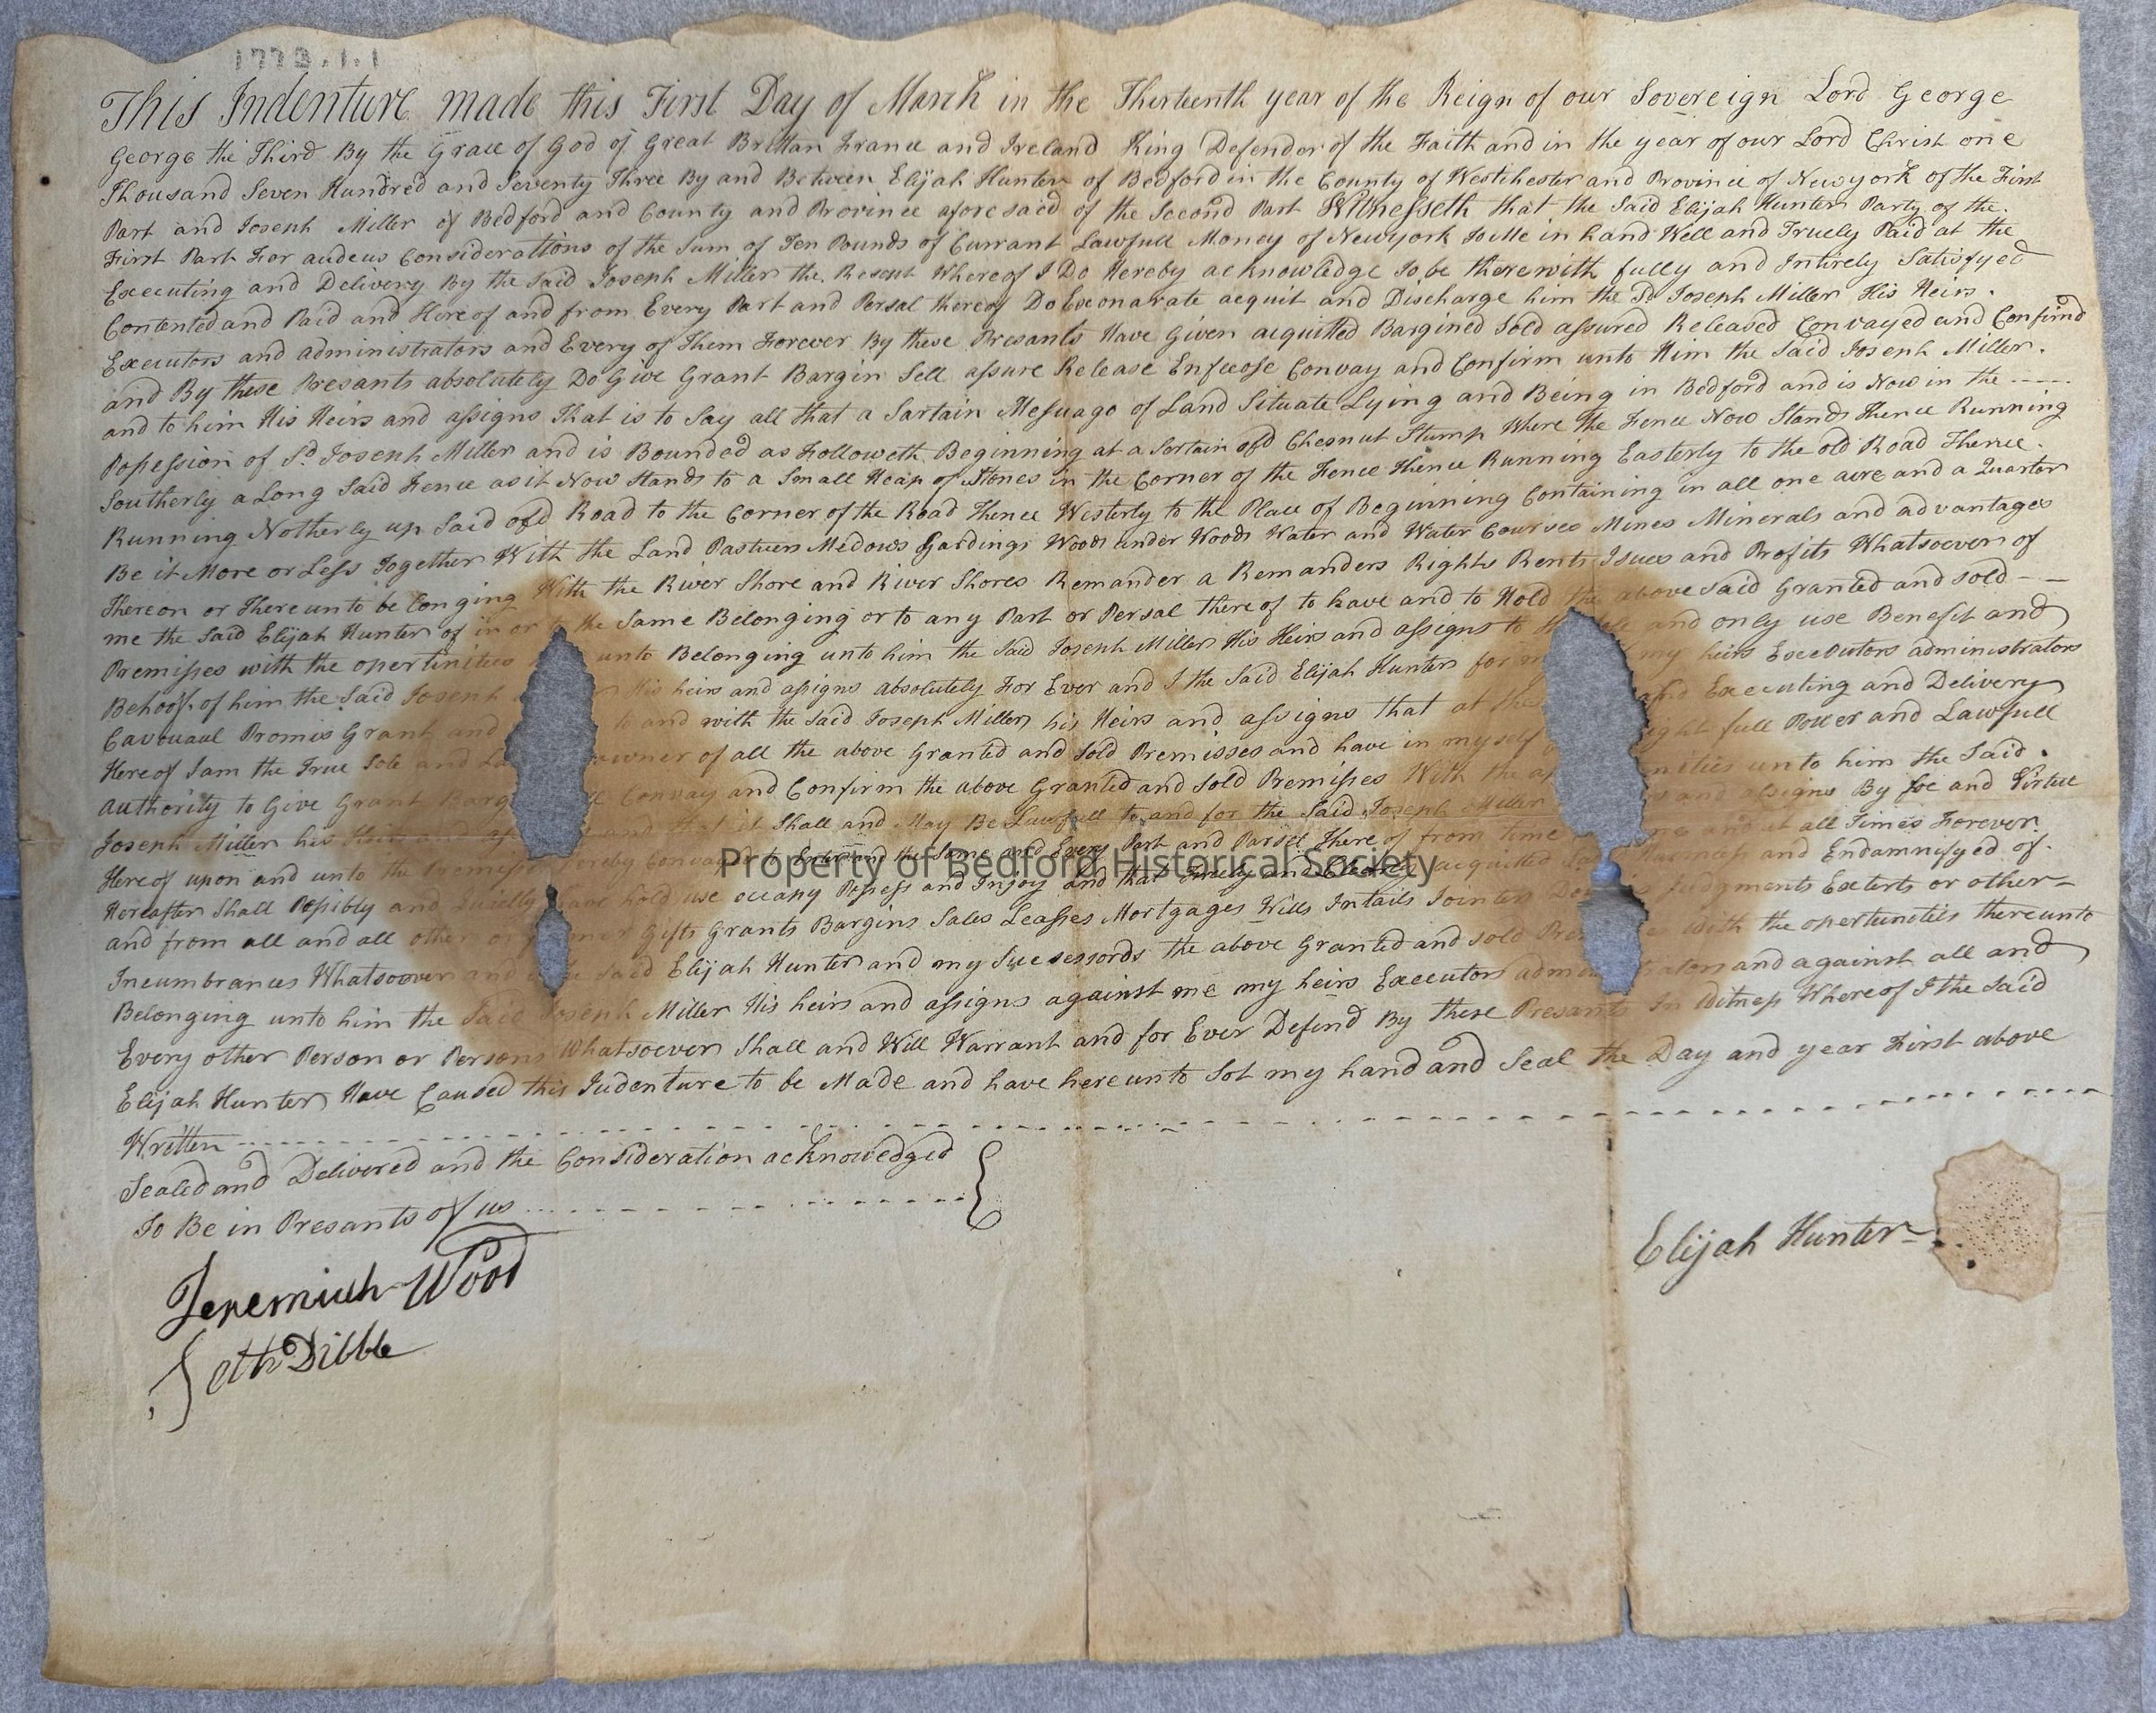 1773.1.1
This Indenture made this First Day of March in the Thirteenth year of the Reign of our Sovereign Lord George
George the Third By the Grace of God of Great Brittan France and Ireland King Defender of the Faith and in the year of our Lord Christ one
Thousand Seven Hundred and Seventy Three By and Between Elijah Hunter of Bedford in the County of Westchester and Province of Newyork of the First
Part and Joseph Miller of Bedford and County and Province afore said of the Second Part Witnesseth that the Said Elijah Hunter Party of the
First Part For and Considerations of the Sum of Ten Pounds of Currant Lawfull Money of Newyork To Me in hand Well and Truely Paid at the
Executing and Delivery By the Said Joseph Miller the Whereof I Do Hereby acknowledge To be therewith fully and Intirely Satisfyed
Contented and Paid and Hereof and from Every Part and Persal thereof Do Exonarate acquit and Discharge him the Sd Joseph Miller His Heirs
Executors and administrators and Every of Them Forever By these Presants Have Given acquitted Bargined Sold assured Released Convayed and Confirmd
and By these Presants absolutely Do Give Grant Bargin Sell assure Release Enfeose Convay and Confirm unto Him the Said Joseph Miller
and to him His Heirs and assigns That is to Say all that a Sartain Mesuage of Land Situate Lying and Being in Bedford and is Now in the
Posession of Sd Joseph Miller and is Bounded as Followeth Beginning at a Sertain old Chesnut Stump Where the Fence Now Stands Thence Running
Southerly a Long Said Fence as it Now Stands to a Small Heap of Stones in the Corner of the Fence Thence Running Easterly to the old Road Thence
Running Notherly up Said old Road to the Corner of the Road Thence Westerly to the Place of Beginning Containing in all one acre and a Quarter
Be it More or Less Together With the Land Pastuers Medows Gardings Woods under Woods Water and Water Courses Mines Minerals and advantages
Thereon or There unto be longing With the River Shore and River Shores Remander a Remanders Rights Rents Isues and Profits Whatsoever of
me the Said Elijah Hunter of in or to the Same Belonging or to any Part or Persal there of to have and to Hold the above Said Granted and sold
Premisses with the opertinities unto Belonging unto him the Said Joseph Miller His Heirs and assigns to and only use Benefit and
Behoof of him the Said Joseph His heirs and assigns absolutely For Ever and I the Said Elijah Hunter for my heirs Executors administrators
Promis Grant and to and with the Said Joseph Miller his Heirs and assigns that at the and Executing and Delivery
Hereof I am the True Sole and owner of all the above Granted and Sold Premisses and have in my self full Power and Lawfull
authority to Give Grant Convay and Confirm the above Granted and Sold Premisses With the unto him the Said
Joseph Miller his Heirs and and that it Shall and May Be Lawfull to and for the Said Joseph Miller and assigns By and Virtue
Hereof upon and unto the hereby Convayed to Enter and the Same and Every Part and Parsel There of from time and at all Times Forever
Hereafter Shall Possibly and Quietly have hold use occupy Possess and Injoy and that Freely and Clearly acquitted and Endamnifyed of
and from all and all other Gifts Grants Bargins Sales Leasses Mortgages Wills Intails Judgments Exterts or other
Incumbrances Whatsoever and Said Elijah Hunter and my Successords the above Granted and sold with the opertunities thereunto
Belonging unto him the Said Joseph Miller His heirs and assigns against me my heirs Executors and against all and
Every other Person or Persons Whatsoever Shall and Will Warrant and for Ever Defend By these Presants In Witness Where of I the Said
Elijah Hunter Have Caused this Indenture to be Made and have here unto Set my hand and Seal the Day and year First above
Written
Sealed and Delivered and the Consideration acknowledged
To Be in Presants of us
Elijah Hunter
Jeremiah Wood
Seth Dibble
Property of Bedford Historical Society